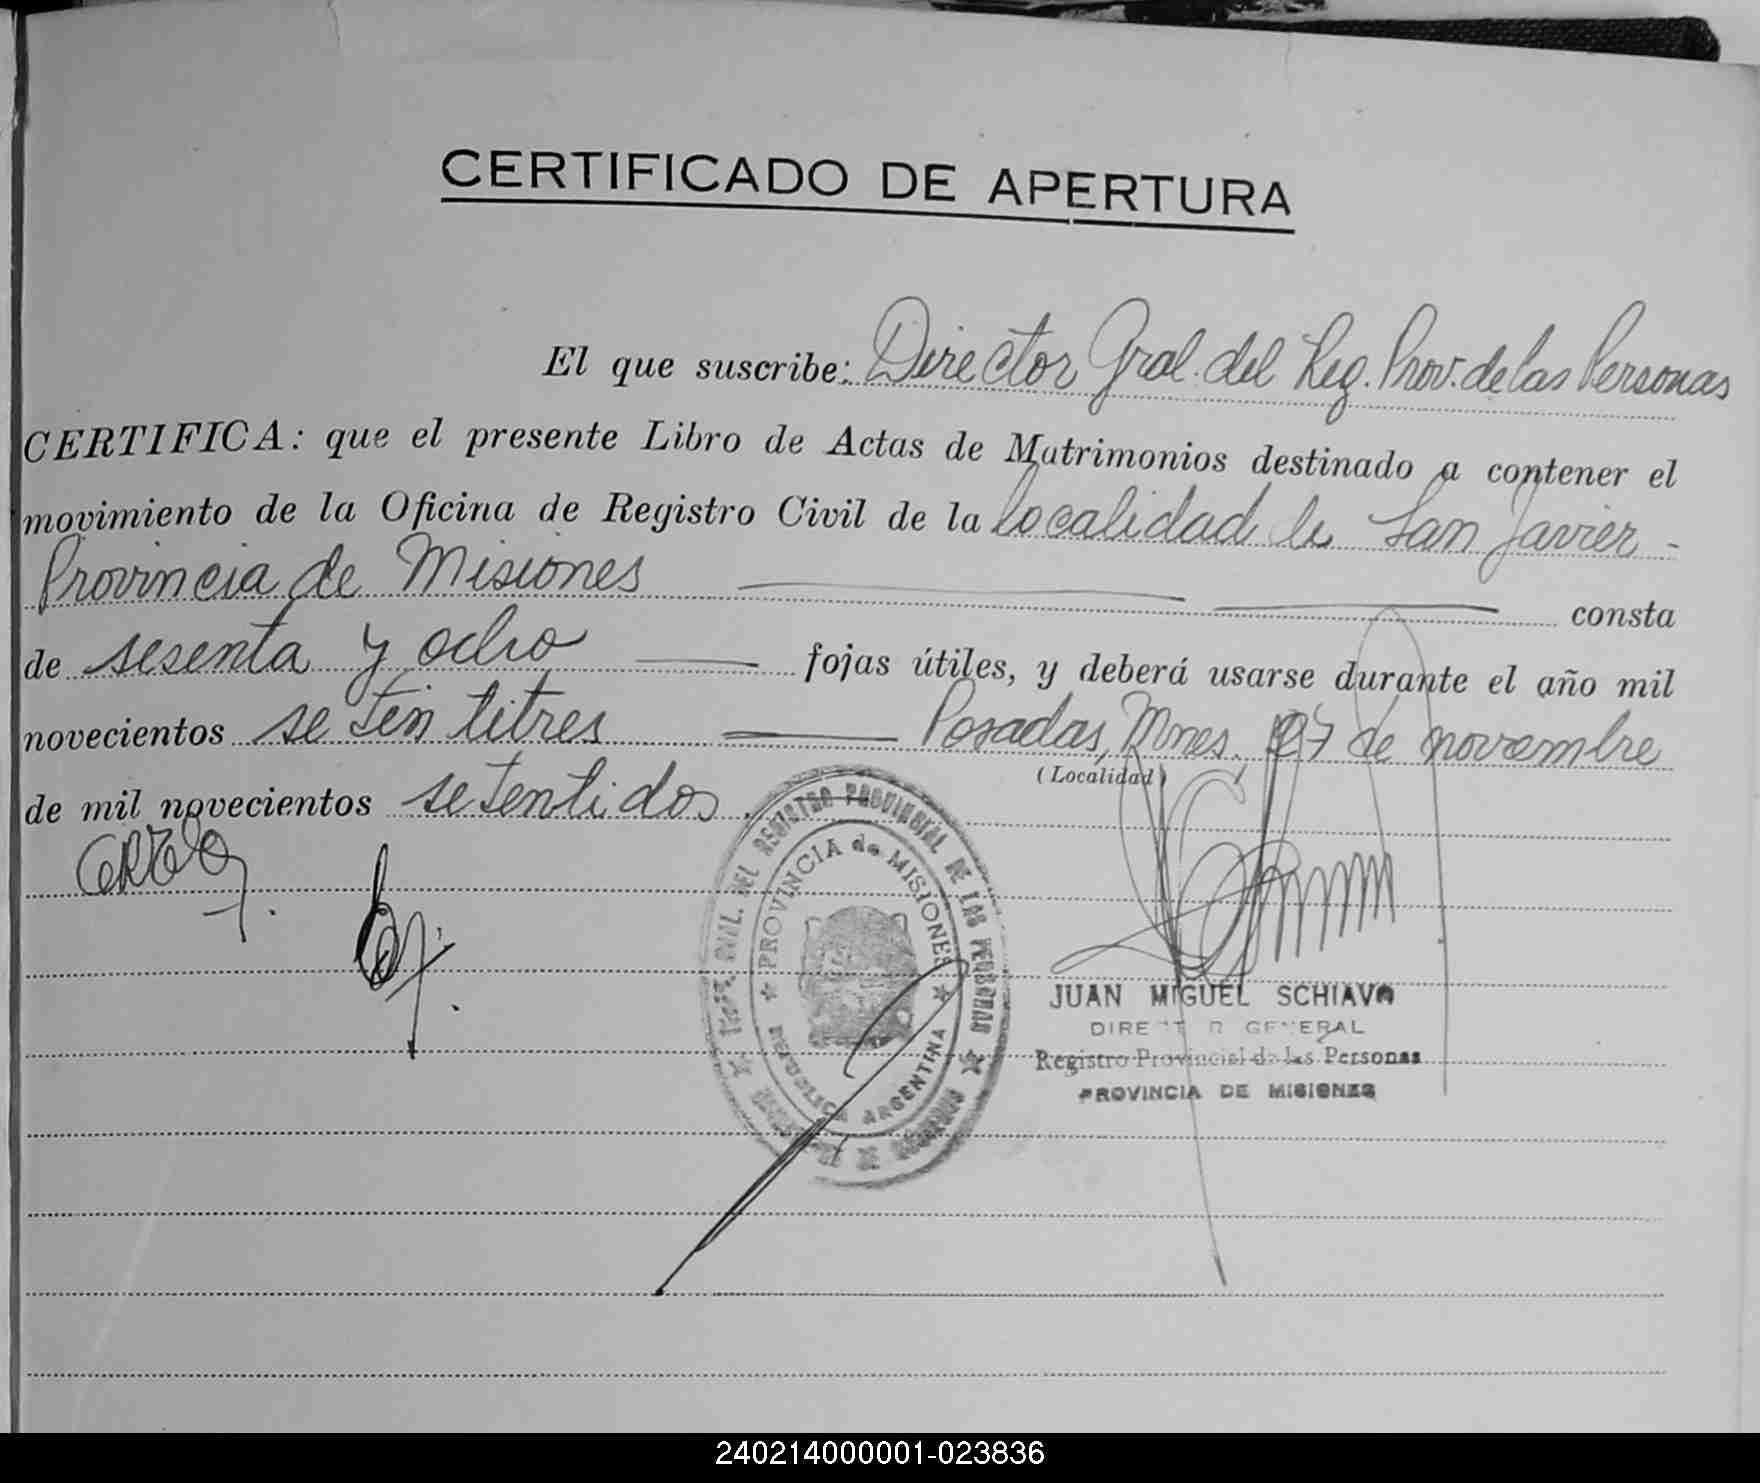 CERTIFICADO DE APERTURA
El que suscribe: Director Gral. del Reg. Prov. de las Personas
CERTIFICA: que el presente Libro de Actas de Matrimonios destinado a contener el
movimiento de la Oficina de Registro Civil de la localidad de San Javier -
Provincia de Misiones consta
de sesenta y ocho fojas útiles, y deberá usarse durante el año mil
novecientos setentitres Posadas, Mnes. 27 de novembre
(Localidad)
de mil novecientos setentidos.
GRAL. DEL REGISTRO PROVINCIAL DE LAS PERSONAS
PROVINCIA de MISIONES
REPUBLICA ARGENTINA
JUAN MIGUEL SCHIAVO
DIRECTOR GENERAL
Registro Provincial de las Personas
PROVINCIA DE MISIONES
240214000001-023836